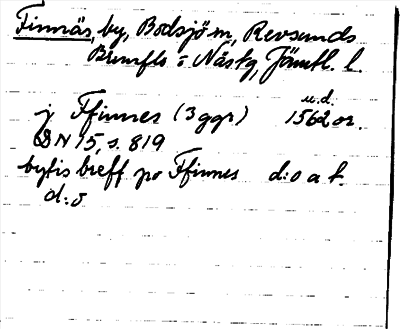 Finnäs, by, Bodsjö sn, Revsunds
Brunflo o Näs tg, Jämtl. l.
u.d.
j Ffinnes (3 ggr) 1562 or.
DN 15, s. 819
bytis breff po Ffinnes d:o a t.
d:o